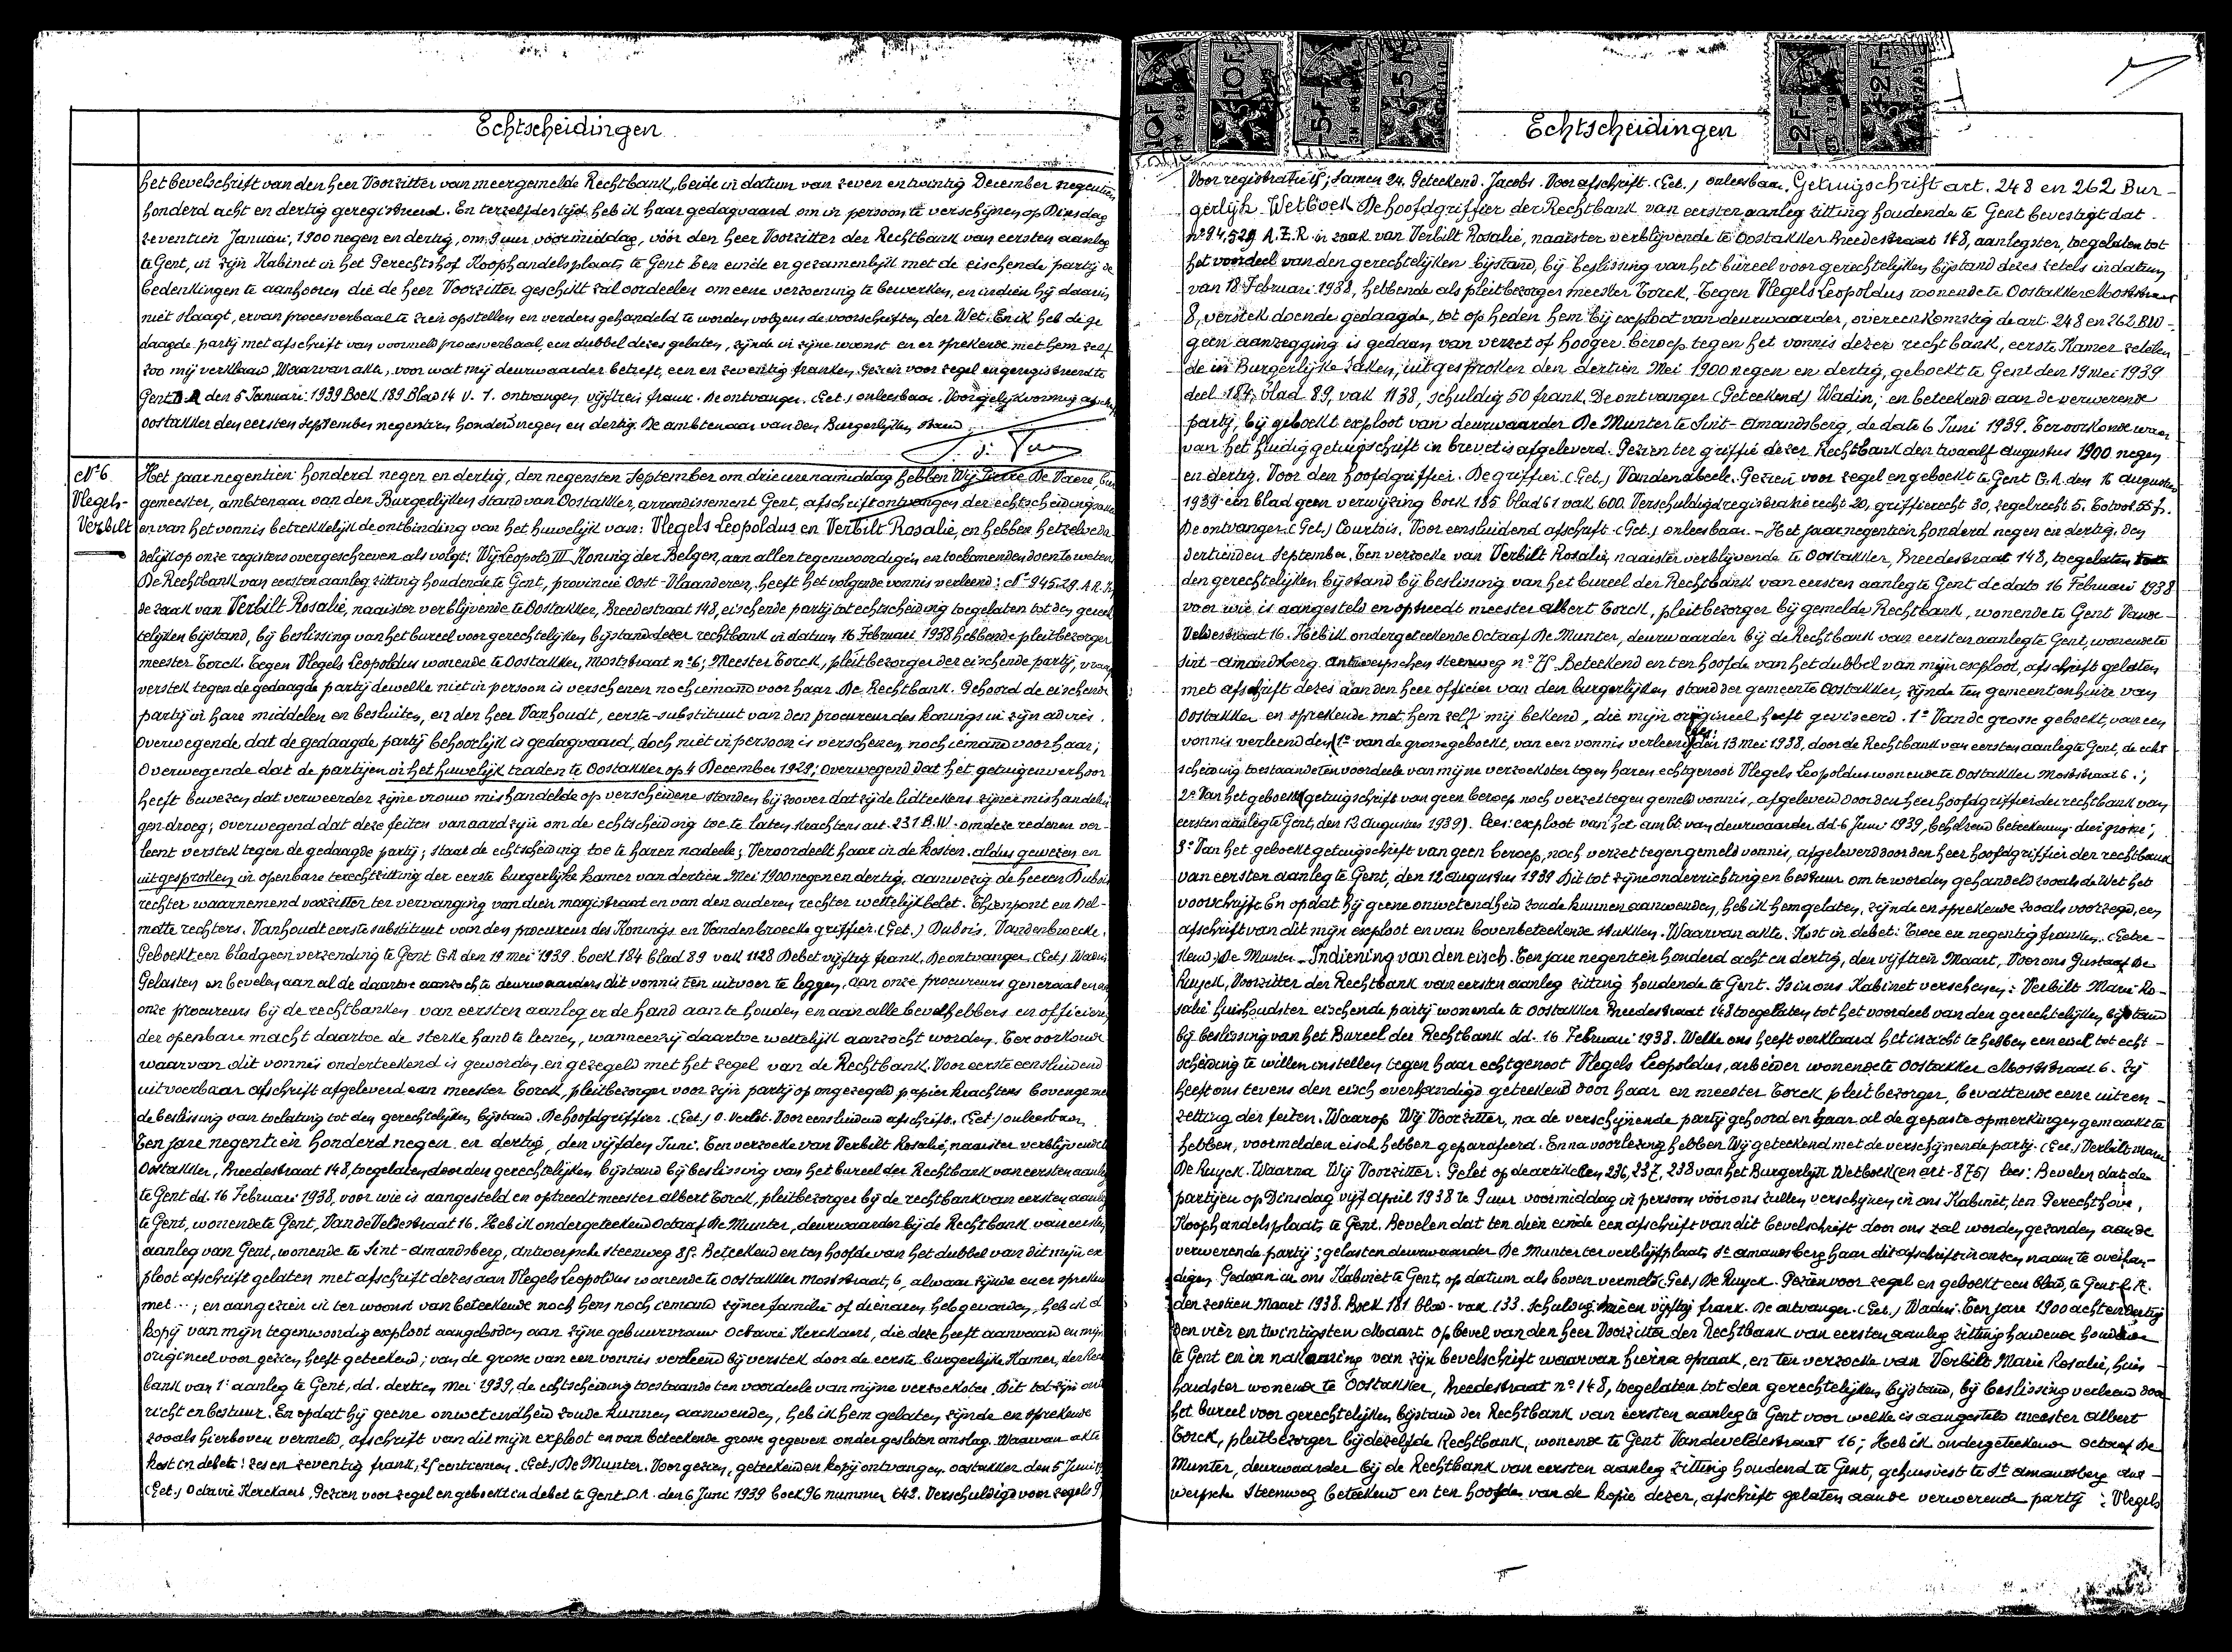 Echtscheidingen
het bevelschrift van den heer Voorzitter van meergemelde Rechtbank, beide in datum van zeven en twintig December negentien
honderd acht en dertig geregistreerd. En terzelfdertijd heb ik haar gedagvaard om in persoon te verschijnen op Dinsdag
zeventien Januari, 1900 negen en dertig, om 9 uur voormiddag, vóór den heer Voorzitter der Rechtbank van eersten aanleg
te Gent, in zijn Kabinet in het Gerechtshof Koophandelsplaats te Gent ten einde er gezamenlijk met de eischende partij de
bedenkingen te aanhooren die de heer Voorzitter geschikt zal oordeelen om eene verzoening te bewerken, en indien hij daarin
niet slaagt, ervan procesverbaal te zien opstellen en verders gehandeld te worden volgens de voorschriften der Wet. En ik heb de ge
daagde partij met afschrift van voormeld procesverbaal, een dubbel dezes gelaten, zijnde in zijne woonst en er sprekende met hem zelf
zoo mij verklaard. Waarvan akte, voor wat mij deurwaarder betreft, een en zeventig franken. Gezien voor zegel en geregistreerd te
Gent den 5 Januari 1939 Boek 189 Blad 14 V. 7. ontvangen vijftien frank. De ontvanger. (Get.) onleesbaar. Voor gelijkvormig afschrift
Oostakker den eersten September negentien honderd negen en dertig. De ambtenaar van den Burgerlijken Stand
Nº 6
Vlegels-
Verbilt
Het jaar negentien honderd negen en dertig, den negensten September om drie ure namiddag hebben Wij De Vaere, bur
gemeester, ambtenaar van den Burgerlijken stand van Oostakker, arrondissement Gent, afschrift ontvangen der echtscheidingsakte
en van het vonnis betrekkelijk de ontbinding van het huwelijk van: Vlegels Leopoldus en Verbilt Rosalie, en hebben hetzelve da
delijk op onze registers overgeschreven als volgt: Wij Leopold III Koning der Belgen, aan allen tegenwoordigen en toekomenden doen te weten
De Rechtbank van eersten aanleg zitting houdende te Gent, provincie Oost-Vlaanderen, heeft het volgende vonnis verleend: Nº 94529 A.R. In
de zaak van Verbilt Rosalie, naaister verblijvende te Oostakker, Breedestraat 148, eischende partij tot echtscheiding toegelaten tot den gerech
telijken bijstand, bij beslissing van het bureel voor gerechtelijken bijstand dezer rechtbank in datum 16 Februari 1938 hebbende pleitbezorger
meester Torck. Tegen Vlegels Leopoldus wonende te Oostakker, Moststraat nº 6; Meester Torck, pleitbezorger der eischende partij, vraagt
verstek tegen de gedaagde partij dewelke niet in persoon is verschenen noch iemand voor haar. De Rechtbank. Gehoord de eischende
partij in hare middelen en besluiten, en den heer Vanhoudt, eerste-substituut van den procureur des konings in zijn advies.
Overwegende dat de gedaagde partij behoorlijk is gedagvaard, doch niet in persoon is verschenen, noch iemand voor haar;
Overwegende dat de partijen in het huwelijk traden te Oostakker op 4 December 1929; Overwegend dat het getuigenverhoor
heeft bewezen dat verweerder zijne vrouw mishandelde op verscheidene stonden bij zoover dat zij de lidteekens zijner mishandelin
gen droeg; overwegend dat deze feiten van aard zijn om de echtscheiding toe te laten krachtens art. 231 B.W. om deze redenen ver-
leent verstek tegen de gedaagde partij; staat de echtscheiding toe te haren nadeele; Veroordeelt haar in de kosten. aldus gewezen en
uitgesproken in openbare terechtzitting der eerste burgerlijke kamer van dertien Mei 1900 negen en dertig, aanwezig de heeren Dubois
rechter waarnemend voorzitter ter vervanging van dien magistraat en van den ouderen rechter wettelijk belet. Thienpont en Del-
motte rechters. Vanhoudt eerste substituut van den procureur des Konings en Vandenbroecke griffier. (Get.) Dubois. Vandenbroecke.
Geboekt een blad geen verzending te Gent G.A den 19 mei 1939 boek 184 blad 89 vak 1128 Debet vijftig frank. De ontvanger (Get.) Wadin
Gelasten en bevelen aan al de daartoe aanzochte deurwaarders dit vonnis ten uitvoer te leggen, aan onze procureurs generaal en aan
onze procureurs bij de rechtbanken van eersten aanleg er de hand aan te houden en aan alle bevelhebbers en officieren
der openbare macht daartoe de sterke hand te leenen, wanneer zij daartoe wettelijk aanzocht worden. Ter oorkonde
waarvan dit vonnis onderteekend is geworden en gezegeld met het zegel van de Rechtbank. Voor eerste eensluidend
uitvoerbaar afschrift afgeleverd aan meester Torck, pleitbezorger voor zijn partij op ongezegeld papier krachtens bovengemel
de beslissing van toelating tot den gerechtelijken bijstand. De hoofdgriffier. (Get.) O. Verlot. Voor eensluidend afschrift. (Get.) onleesbaar.
Ten jare negentien honderd negen en dertig, den vijfden Juni. Ten verzoeke van Verbilt Rosalie, naaister verblijvende te
Oostakker, Breedestraat 148, toegelaten door den gerechtelijken bijstand bij beslissing van het bureel der Rechtbank van eersten aanleg
te Gent dd. 16 Februari 1938, voor wie is aangesteld en optreedt meester albert Torck, pleitbezorger bij de rechtbank van eersten aanleg
te Gent, wonende te Gent, Van de Veldestraat 16. Heb ik ondergeteekend Octaaf De Munter, deurwaarder bij de Rechtbank van eersten
aanleg van Gent, wonende te Sint-Amandsberg, antwerpsche steenweg 85. Beteekend en ten hoofde van het dubbel van dit mijn ex
ploot afschrift gelaten met afschrift dezes aan Vlegels Leopoldus wonende te oostakker moststraat, 6, alwaar zijnde en er sprekend
met ...; en aangezien ik ter woonst van beteekende noch hem noch iemand zijner familie of dienaren heb gevonden, heb ik de
kopij van mijn tegenwoordig exploot aangeboden aan zijne gebuurvrouw Octavie Kerckaert, die deze heeft aanvaard en mijn
origineel voor gezien heeft geteekend; van de grosse van een vonnis verleend bij verstek door de eerste burgerlijke Kamer, der Recht
bank van 1º aanleg te Gent, dd. dertien mei 1939, de echtscheiding toestaande ten voordeele van mijne verzoekster. Dit tot zijn onder
richt en bestuur. En opdat hij geene onwetendheid zoude kunnen aanwenden, heb ik hem gelaten zijnde en sprekende
zooals hierboven vermeld, afschrift van dit mijn exploot en van beteekende grosse gegeven onder gesloten omslag. Waarvan akte
kost in debet: zes en zeventig frank, 25 centiemen. (Get.) De Munter. Voor gezien, geteekend en kopij ontvangen. oostakker den 5 Juni 39
(Get.) Octavie Kerckaert. Gezien voor zegel en geboekt in debet te Gent D.A. den 6 Juni 1939 boek 96 nummer 642. Verschuldigd voor zegels 9
Echtscheidingen
Voor registratie 15; Samen 24. Geteekend. Jacobs. Voor afschrift. (Get.) onleesbaar. Getuigschrift art. 248 en 262 Bur-
gerlijk. Wetboek De hoofdgriffier der Rechtbank van eersten aanleg zitting houdende te Gent bevestigt dat
nº 94.529 A.Z.R. in zaak van Verbilt Rosalie, naaister verblijvende te Oostakker Breedestraat 148, aanlegster, toegelaten tot
het voordeel van den gerechtelijken bijstand, bij beslissing van het bureel voor gerechtelijken bijstand dezes zetels in datum
van 18 Februari 1938, hebbende als pleitbezorger meester Torck. Tegen Vlegels Leopoldus wonende te Oostakker Moststraat
8, verstek doende gedaagde, tot op heden hem bij exploot van deurwaarder, overeenkomstig de art. 248 en 262 BW-
geen aanzegging is gedaan van verzet of hooger beroep tegen het vonnis dezer rechtbank, eerste Kamer zetelen
de in Burgerlijke zaken, uitgesproken den dertien Mei 1900 negen en dertig, geboekt te Gent den 19 mei 1939
deel 184, blad 89, vak 1138, schuldig 50 frank. De ontvanger (Geteekend) Wadin; en beteekend aan de verwerende
partij, bij geboekt exploot van deurwaarder De Munter te Sint-Amandsberg, de dato 6 Juni 1939. Ter oorkonde waar
van het huidig getuigschrift in brevet is afgeleverd. Gezien ter griffie dezer Rechtbank den twaalf augustus 1900 negen
en dertig. Voor den hoofdgriffier. De griffier. (Get.) Vandenabeele. Gezien voor zegel en geboekt te Gent G.A. den 16 augustus
1939 een blad geen verwijzing boek 185 blad 61 vak 600. Verschuldigd registratierecht 20, griffierecht 30, zegelrecht 5. Totaal 55 f.
De ontvanger (Get.) Courtois. Voor eensluidend afschrift (Get.) onleesbaar. - Het jaar negentien honderd negen en dertig, den
dertienden September. ten verzoeke van Verbilt Rosalie, naaister verblijvende te Oostakker, Breedestraat 148, toegelaten
den gerechtelijken bijstand bij beslissing van het bureel der Rechtbank van eersten aanleg te Gent de dato 16 Februari 1938
voor wie is aangesteld en optreedt meester albert Torck, pleitbezorger bij gemelde Rechtbank, wonende te Gent Vande-
Veldestraat 16. Heb ik ondergeteekende Octaaf De Munter, deurwaarder bij de Rechtbank van eersten aanleg te Gent, wonende te
Sint-Amandsberg Antwerpschen Steenweg nº 75 Beteekend en ten hoofde van het dubbel van mijn exploot, afschrift gelaten
met afschrift dezes aan den heer officier van den burgerlijken stand der gemeente Oostakker, zijnde ten gemeentenhuize van
Oostakker en sprekende met hem zelf mij bekend, die mijn origineel heeft geviseerd. 1º Van de grosse geboekt, van een
vonnis verleend den (1º van de grosse geboekt, van een vonnis verleend) lees: den 13 mei 1938, door de Rechtbank van eersten aanleg te Gent, de echt
scheiding toestaande ten voordeele van mijne verzoekster tegen haren echtgenoot Vlegels Leopoldus wonende te Oostakker Moststraat 6.;
2º Van het geboekt (getuigschrift van geen beroep noch verzet tegen gemeld vonnis, afgeleverd door den heer hoofdgriffier der rechtbank van
eersten aanleg te Gent, den 12 augustus 1939). lees: exploot van het ambt van deurwaarder dd. 6 Juni 1939, behelzend beteekening dier grosse;
3º Van het geboekt getuigschrift van geen beroep, noch verzet tegen gemeld vonnis, afgeleverd door den heer hoofdgriffier der rechtbank
van eersten aanleg te Gent, den 12 augustus 1939 Dit tot zijne onderrichting en bestuur om te worden gehandeld zooals de Wet het
voorschrijft En opdat hij geene onwetendheid zoude kunnen aanwenden, heb ik hem gelaten, zijnde en sprekende zooals voorzegd, een
afschrift van dit mijn exploot en van bovenbeteekende stukken. Waarvan akte. Kost in debet: Twee en negentig franken. (Getee-
kend) De Munter. Indiening van den eisch. Ten jare negentien honderd acht en dertig, den vijftien Maart, Voor ons Gustaaf De
Ruyck, Voorzitter der Rechtbank van eersten aanleg zitting houdende te Gent. Is in ons Kabinet verschenen: Verbilt Marie Ro-
salie huishoudster eischende partij wonende te Oostakker Breedestraat 148 toegelaten tot het voordeel van den gerechtelijken bijstand
bij beslissing van het Bureel der Rechtbank dd. 16 Februari 1938. Welke ons heeft verklaard het inzicht te hebben een eisch tot echt-
scheiding te willen instellen tegen haar echtgenoot Vlegels Leopoldus, arbeider wonende te Oostakker Moststraat 6. Zij
heeft ons tevens den eisch overhandigd geteekend door haar en meester Torck pleitbezorger, bevattende eene uiteen-
zetting der feiten. Waarop Wij Voorzitter, na de verschijnende partij gehoord en haar al de gepaste opmerkingen gemaakt te
hebben, voormelden eisch hebben geparafeerd. En na voorlezing hebben Wij geteekend met de verschijnende partij. (Get.) Verbilt Marie
De Ruyck. Waarna Wij Voorzitter: Gelet op de artikelen 236, 237, 238 van het Burgerlijk Wetboek (en art. 875) lees: Bevelen dat de
partijen op Dinsdag vijf april 1938 te 9 uur voormiddag in persoon vóór ons zullen verschijnen in ons Kabinet, ten Gerechthove,
Koophandelsplaats te Gent. Bevelen dat ten dien einde een afschrift van dit bevelschrift door ons zal worden gezonden aan de
verwerende partij; gelasten deurwaarder De Munter ter verblijfplaats St. amandsberg haar dit afschrift in onzen naam te overhan-
digen. Gedaan in ons Kabinet te Gent, op datum als boven vermeld (Get.) De Ruyck. Gezien voor zegel en geboekt een blad, te Gent G.A.
den zestien Maart 1938. Boek 181 blad - vak 133. Schuldig: drie en vijftig frank. De ontvanger. (Get.) Wadin. Ten jare 1900 acht en dertig
den vier en twintigsten Maart op bevel van den heer Voorzitter der Rechtbank van eersten aanleg zitting houdende
te Gent en in nakoming van zijn bevelschrift waarvan hierna spraak, en ten verzoeke van Verbilt Marie Rosalie, huis-
houdster wonende te Oostakker, Breedestraat nº 148, toegelaten tot den gerechtelijken bijstand, bij beslissing verleend door
het bureel voor gerechtelijken bijstand der Rechtbank van eersten aanleg te Gent voor welke is aangesteld meester albert
Torck, pleitbezorger bij dezelfde Rechtbank, wonende te Gent Vandeveldestraat 16; Heb ik ondergeteekende Octaaf De
Munter, deurwaarder bij de Rechtbank van eersten aanleg zitting houdend te Gent, gehuisvest te St. amandsberg ant-
werpsche Steenweg beteekend en ten hoofde van de kopie dezer, afschrift gelaten aan de verwerende partij: Vlegels
10F
10F
5F
5F
2F
2F